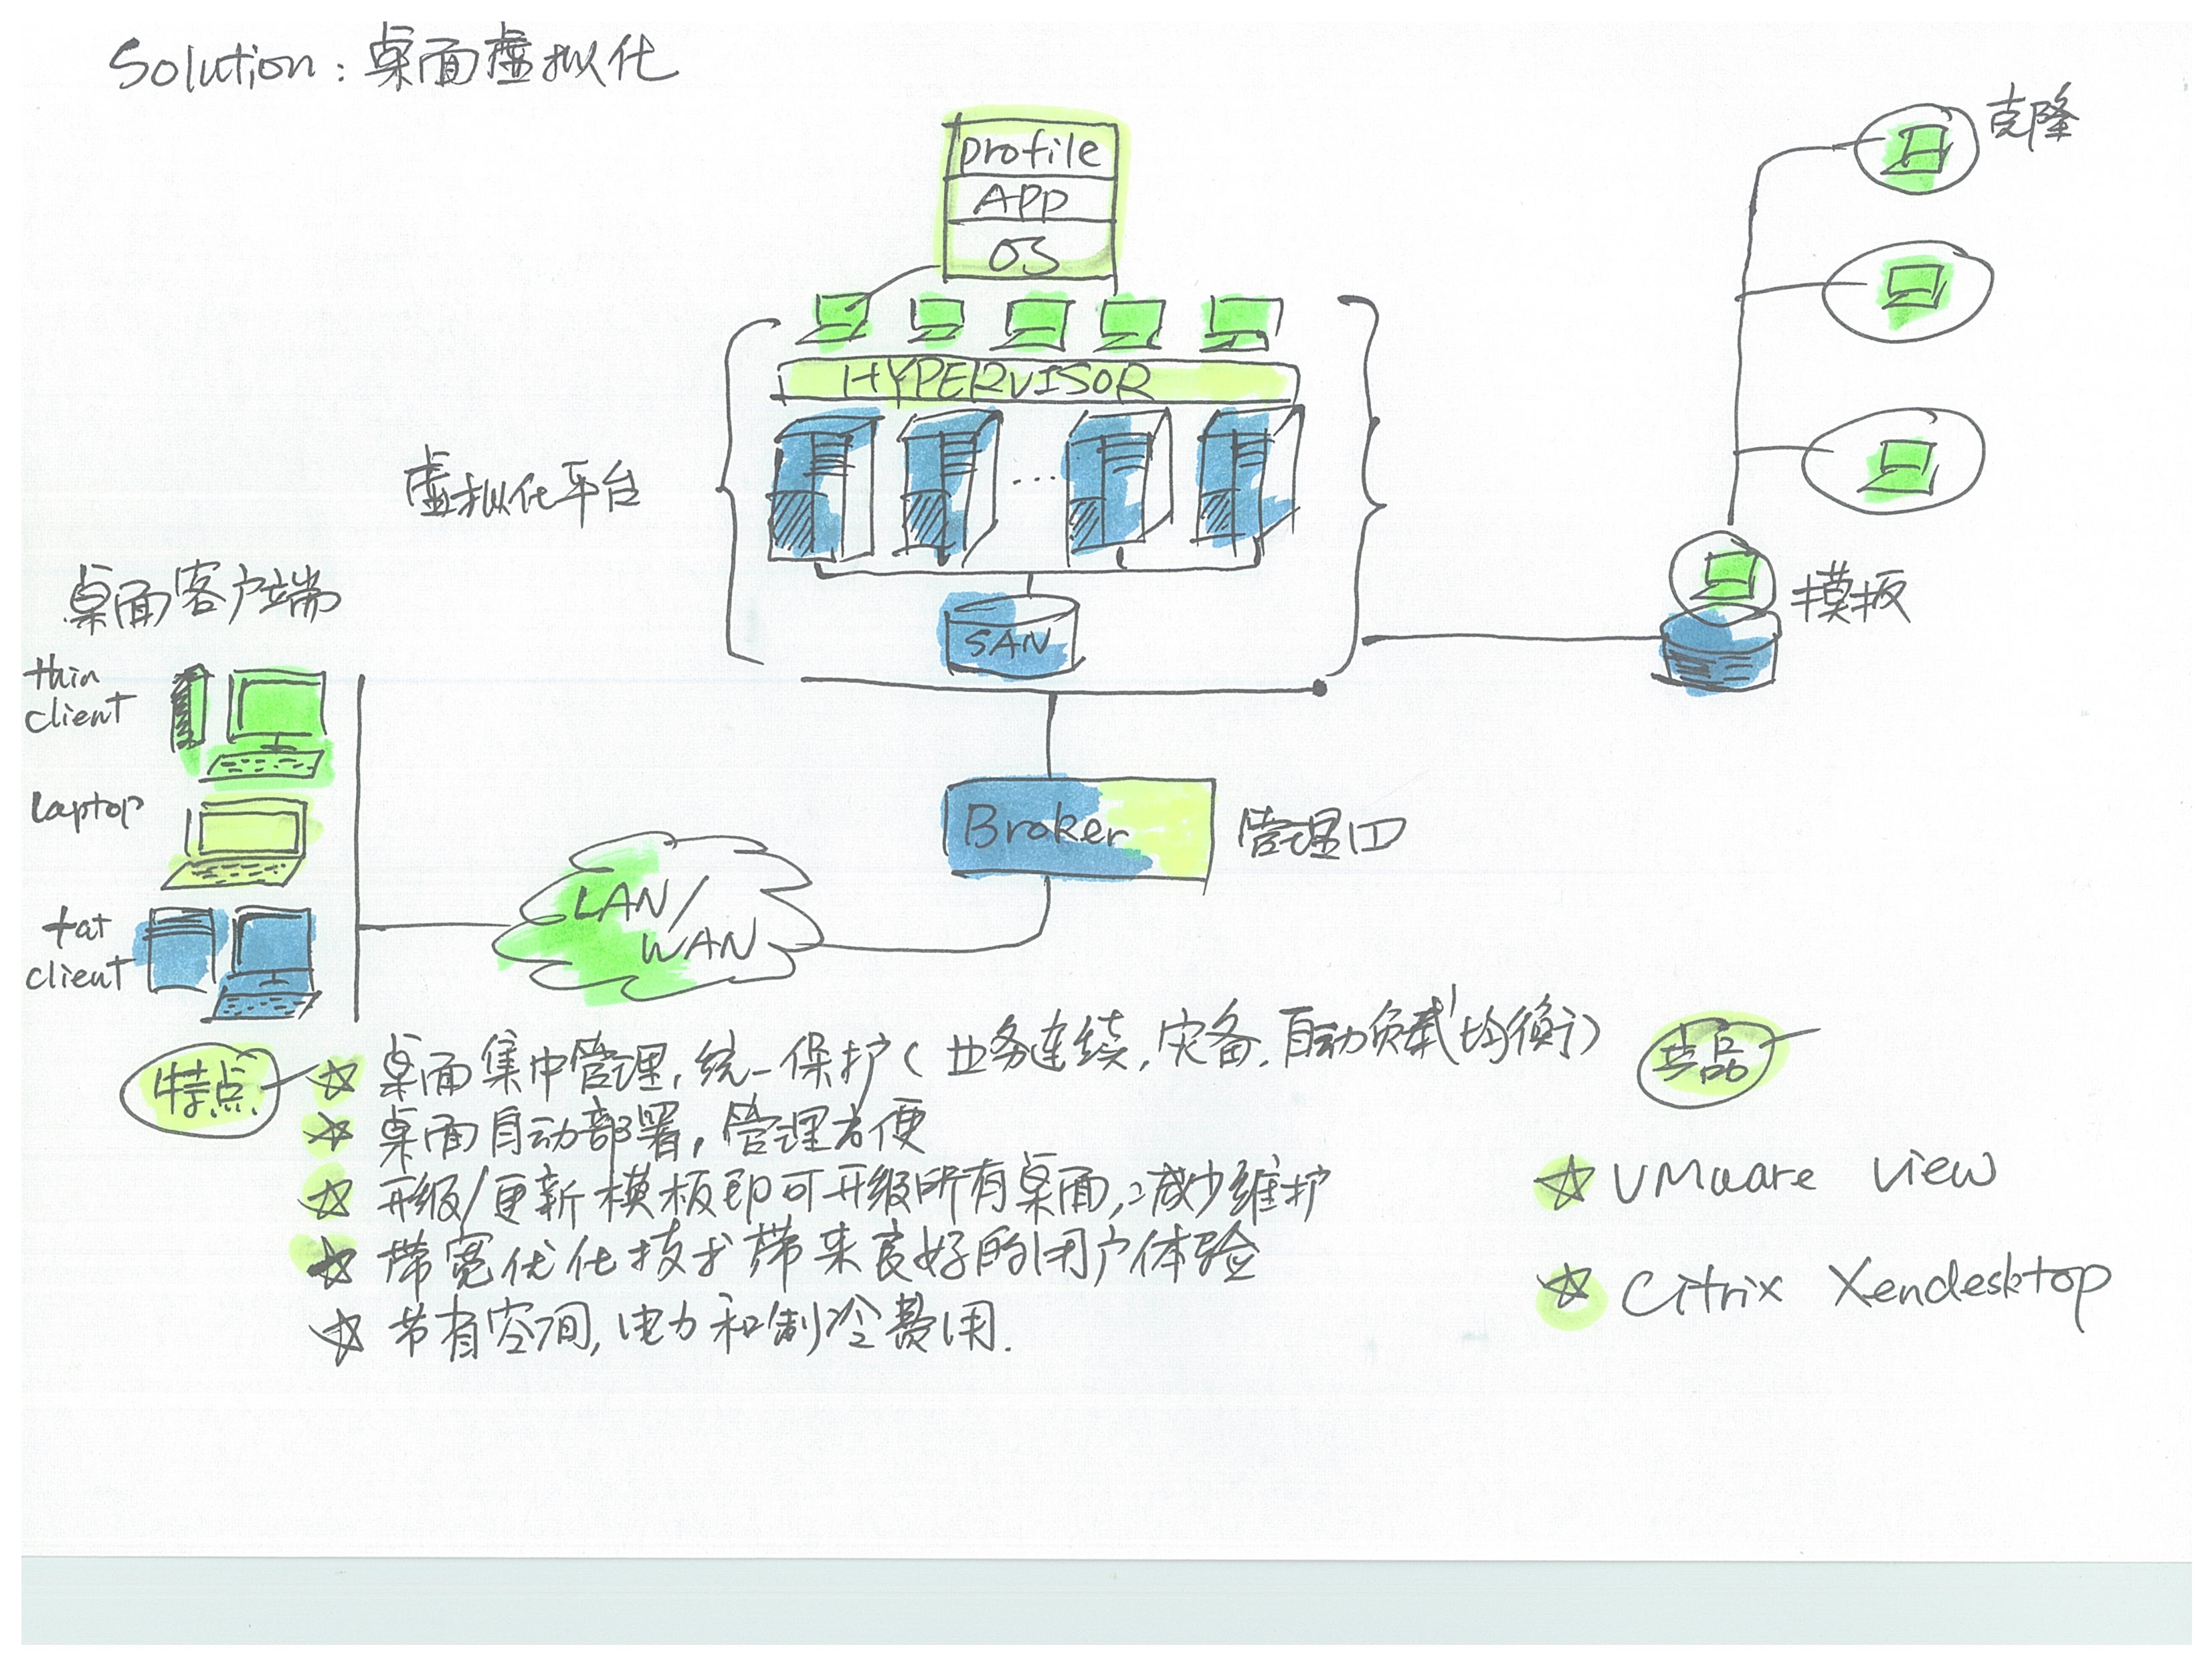 Solution: 桌面虚拟化
profile
APP
OS
克隆
HYPERVISOR
虚拟化平台
...
SAN
模板
桌面客户端
thin
client
laptop
fat
client
Broker
管理
LAN/
WAN
特点
☆ 桌面集中管理,统一保护(业务连续,灾备,自动负载均衡)
☆ 桌面自动部署,管理方便
☆ 升级/更新模板即可升级所有桌面,减少维护
☆ 带宽优化技术带来良好的用户体验
☆ 节省空间,电力和制冷费用.
产品
☆ VMware view
☆ Citrix Xendesktop